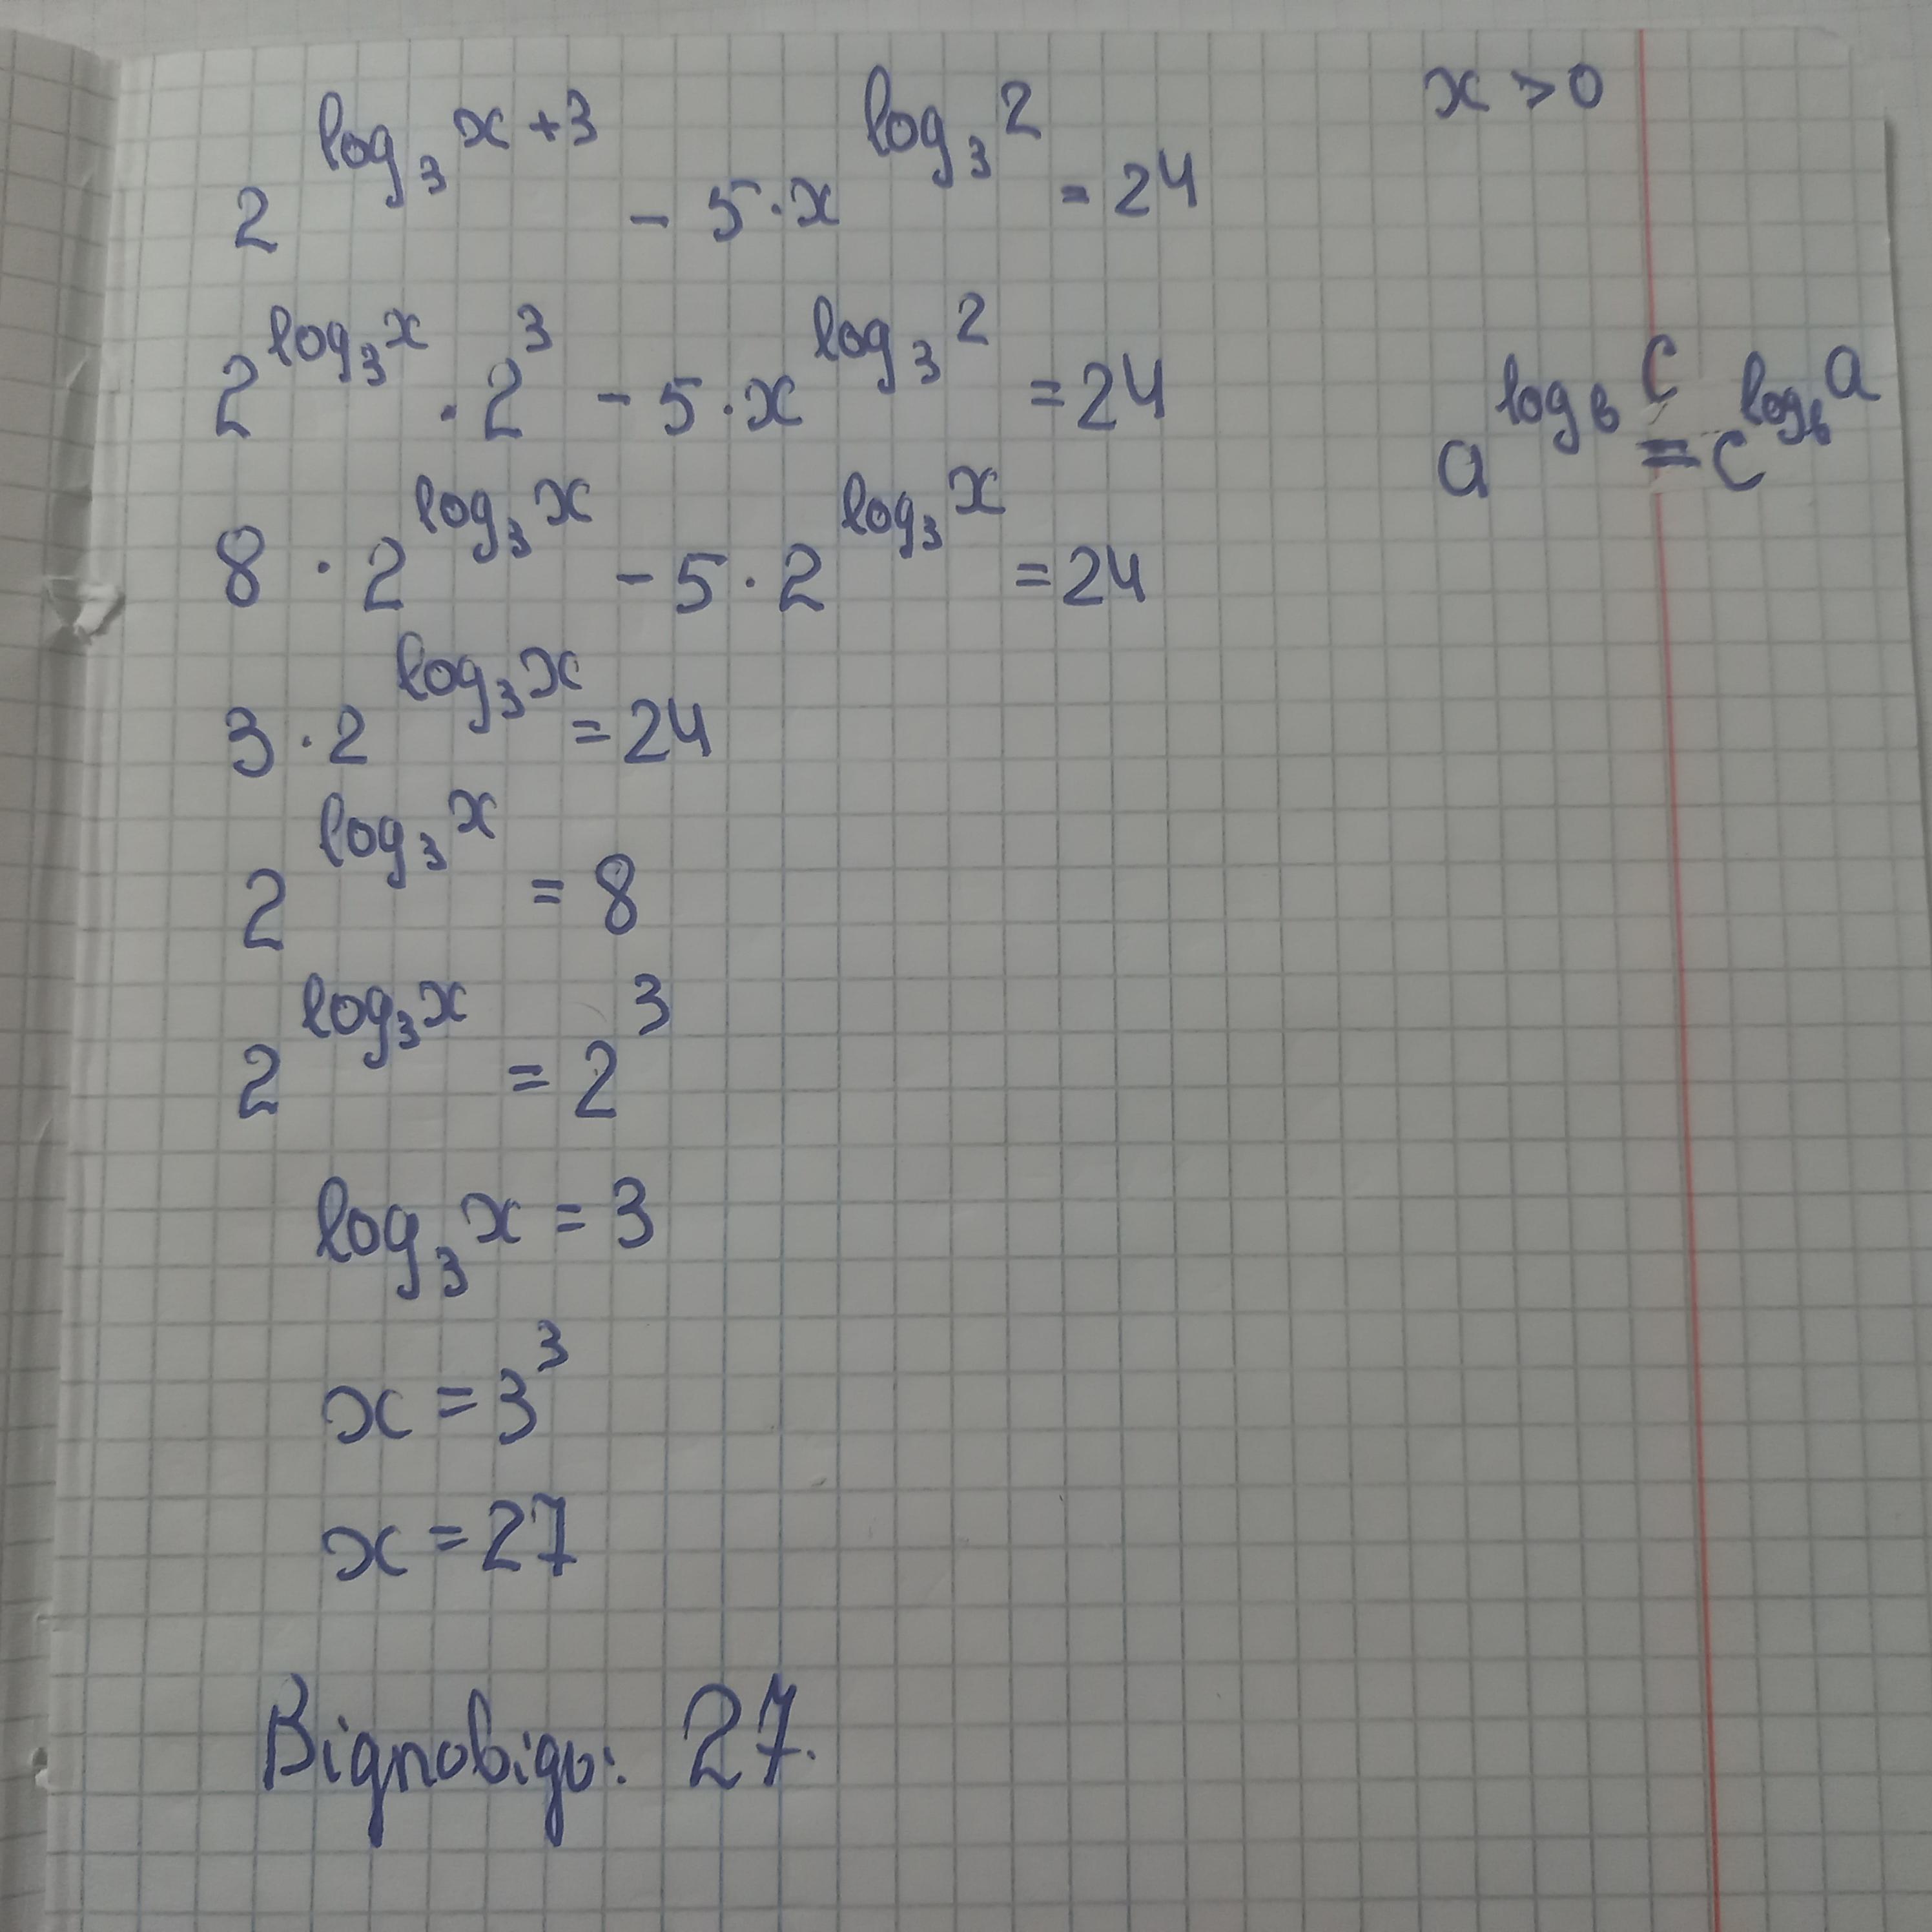 2^{log_3 x + 3} - 5·x^{log_3 2} = 24
x > 0
2^{log_3 x} · 2^3 - 5·x^{log_3 2} = 24
a^{log_b c} = c^{log_b a}
8 · 2^{log_3 x} - 5 · 2^{log_3 x} = 24
3 · 2^{log_3 x} = 24
2^{log_3 x} = 8
2^{log_3 x} = 2^3
log_3 x = 3
x = 3^3
x = 27
Відповідь: 27.